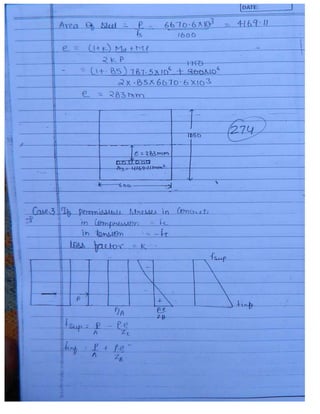 DATE:
Area of Steel = P/fs = 6670.6×10³/1600 = 4169.11
e = (1+K) Md + Ml / 2KP
= (1+.85) 787.5×10⁶ + 1750×10⁶ / 2×.85×6670.6×10³
e = 283mm
1850
274
e = 283mm
600
Case:3 If permissible stresses in concrete
in compression = fc
in tension = -ft
loss factor = K.
fsup
P
P/A
Pe/ZB
finf
fsup = P/A - Pe/Zt
finf = P/A + Pe/ZB